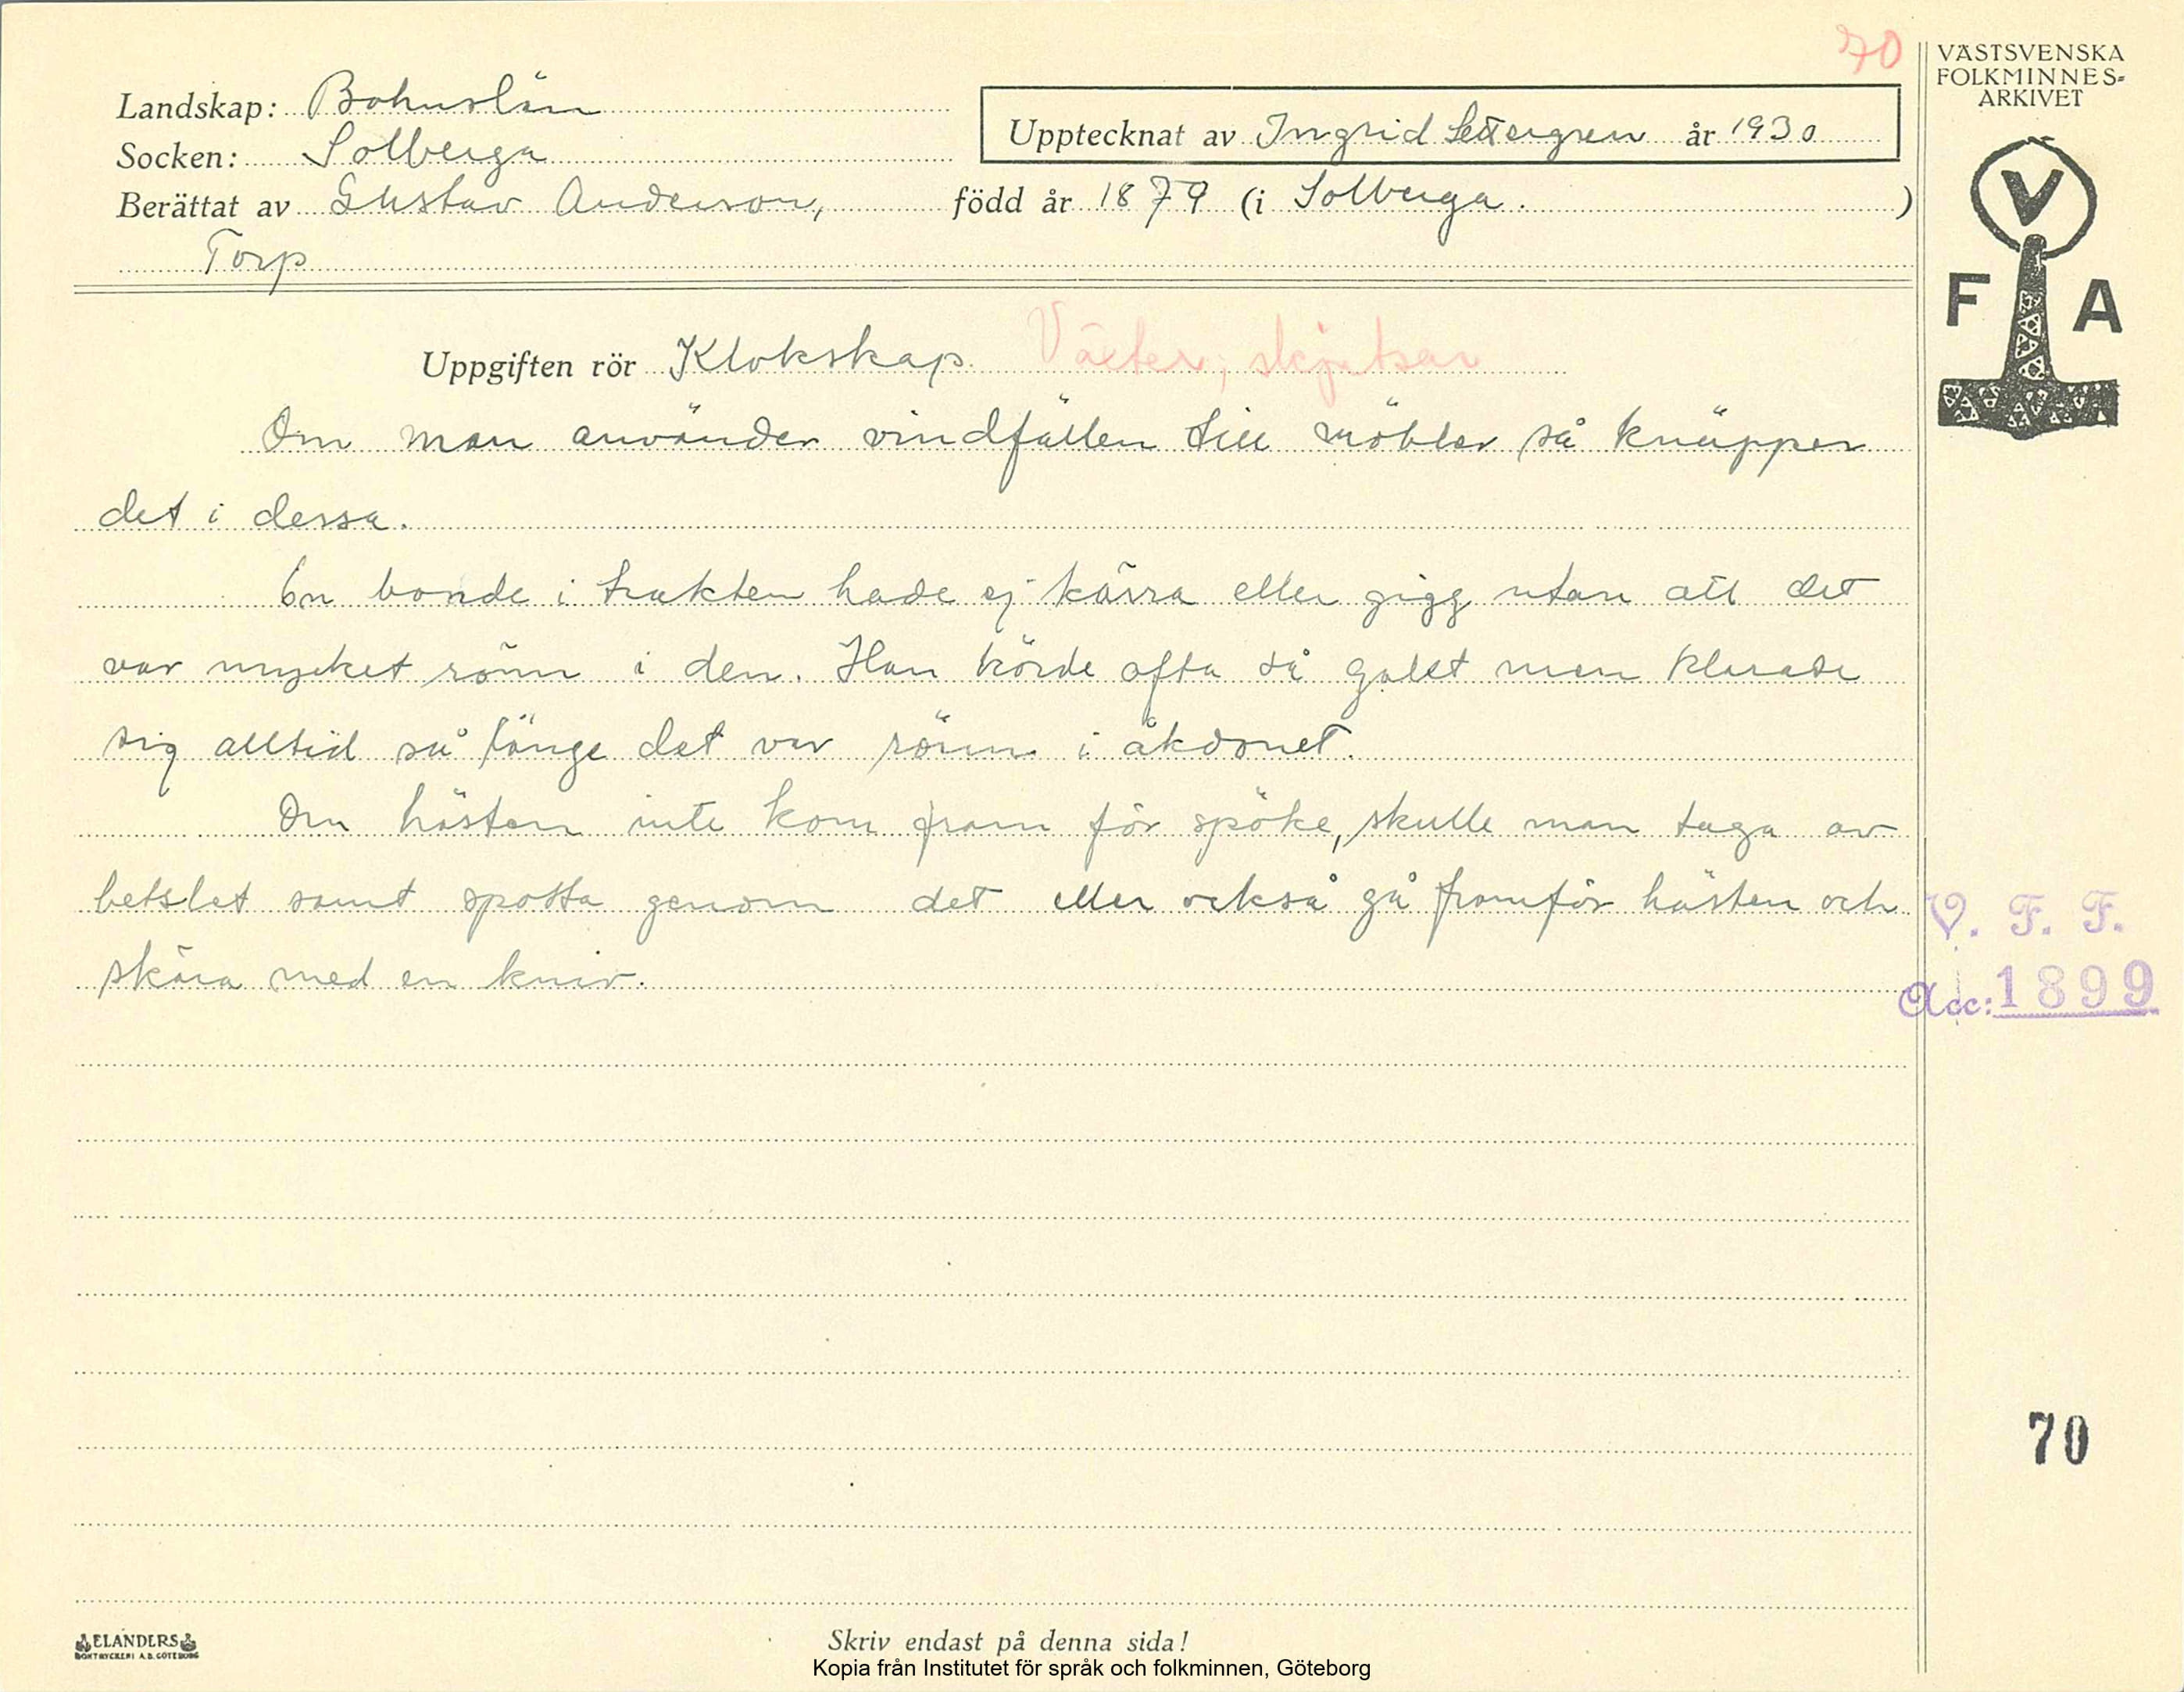 70
VÄSTSVENSKA
FOLKMINNES-
ARKIVET
Landskap: Bohuslän
Socken: Solberga
Upptecknat av Ingrid Settergren år 1930
Berättat av Gustav Anderson, född år 1879 (i Solberga. )
Torp
V
F A
Uppgiften rör Klokskap. Växter, skjutsar
Om man använder vindfällen till möbler så knäpper
det i dessa.
En bonde i trakten hade ej kärra eller gigg utan att det
var mycket rönn i den. Han körde ofta så galet men klarade
sig alltid så länge det var rönn i åkdonet.
Om hästen inte kom fram för spöke, skulle man taga av
betslet samt spotta genom det eller också gå framför hästen och
skära med en kniv.
V. F. F.
Acc: 1899
70
ELANDERS
BOKTRYCKERI A.B. GÖTEBORG
Skriv endast på denna sida!
Kopia från Institutet för språk och folkminnen, Göteborg